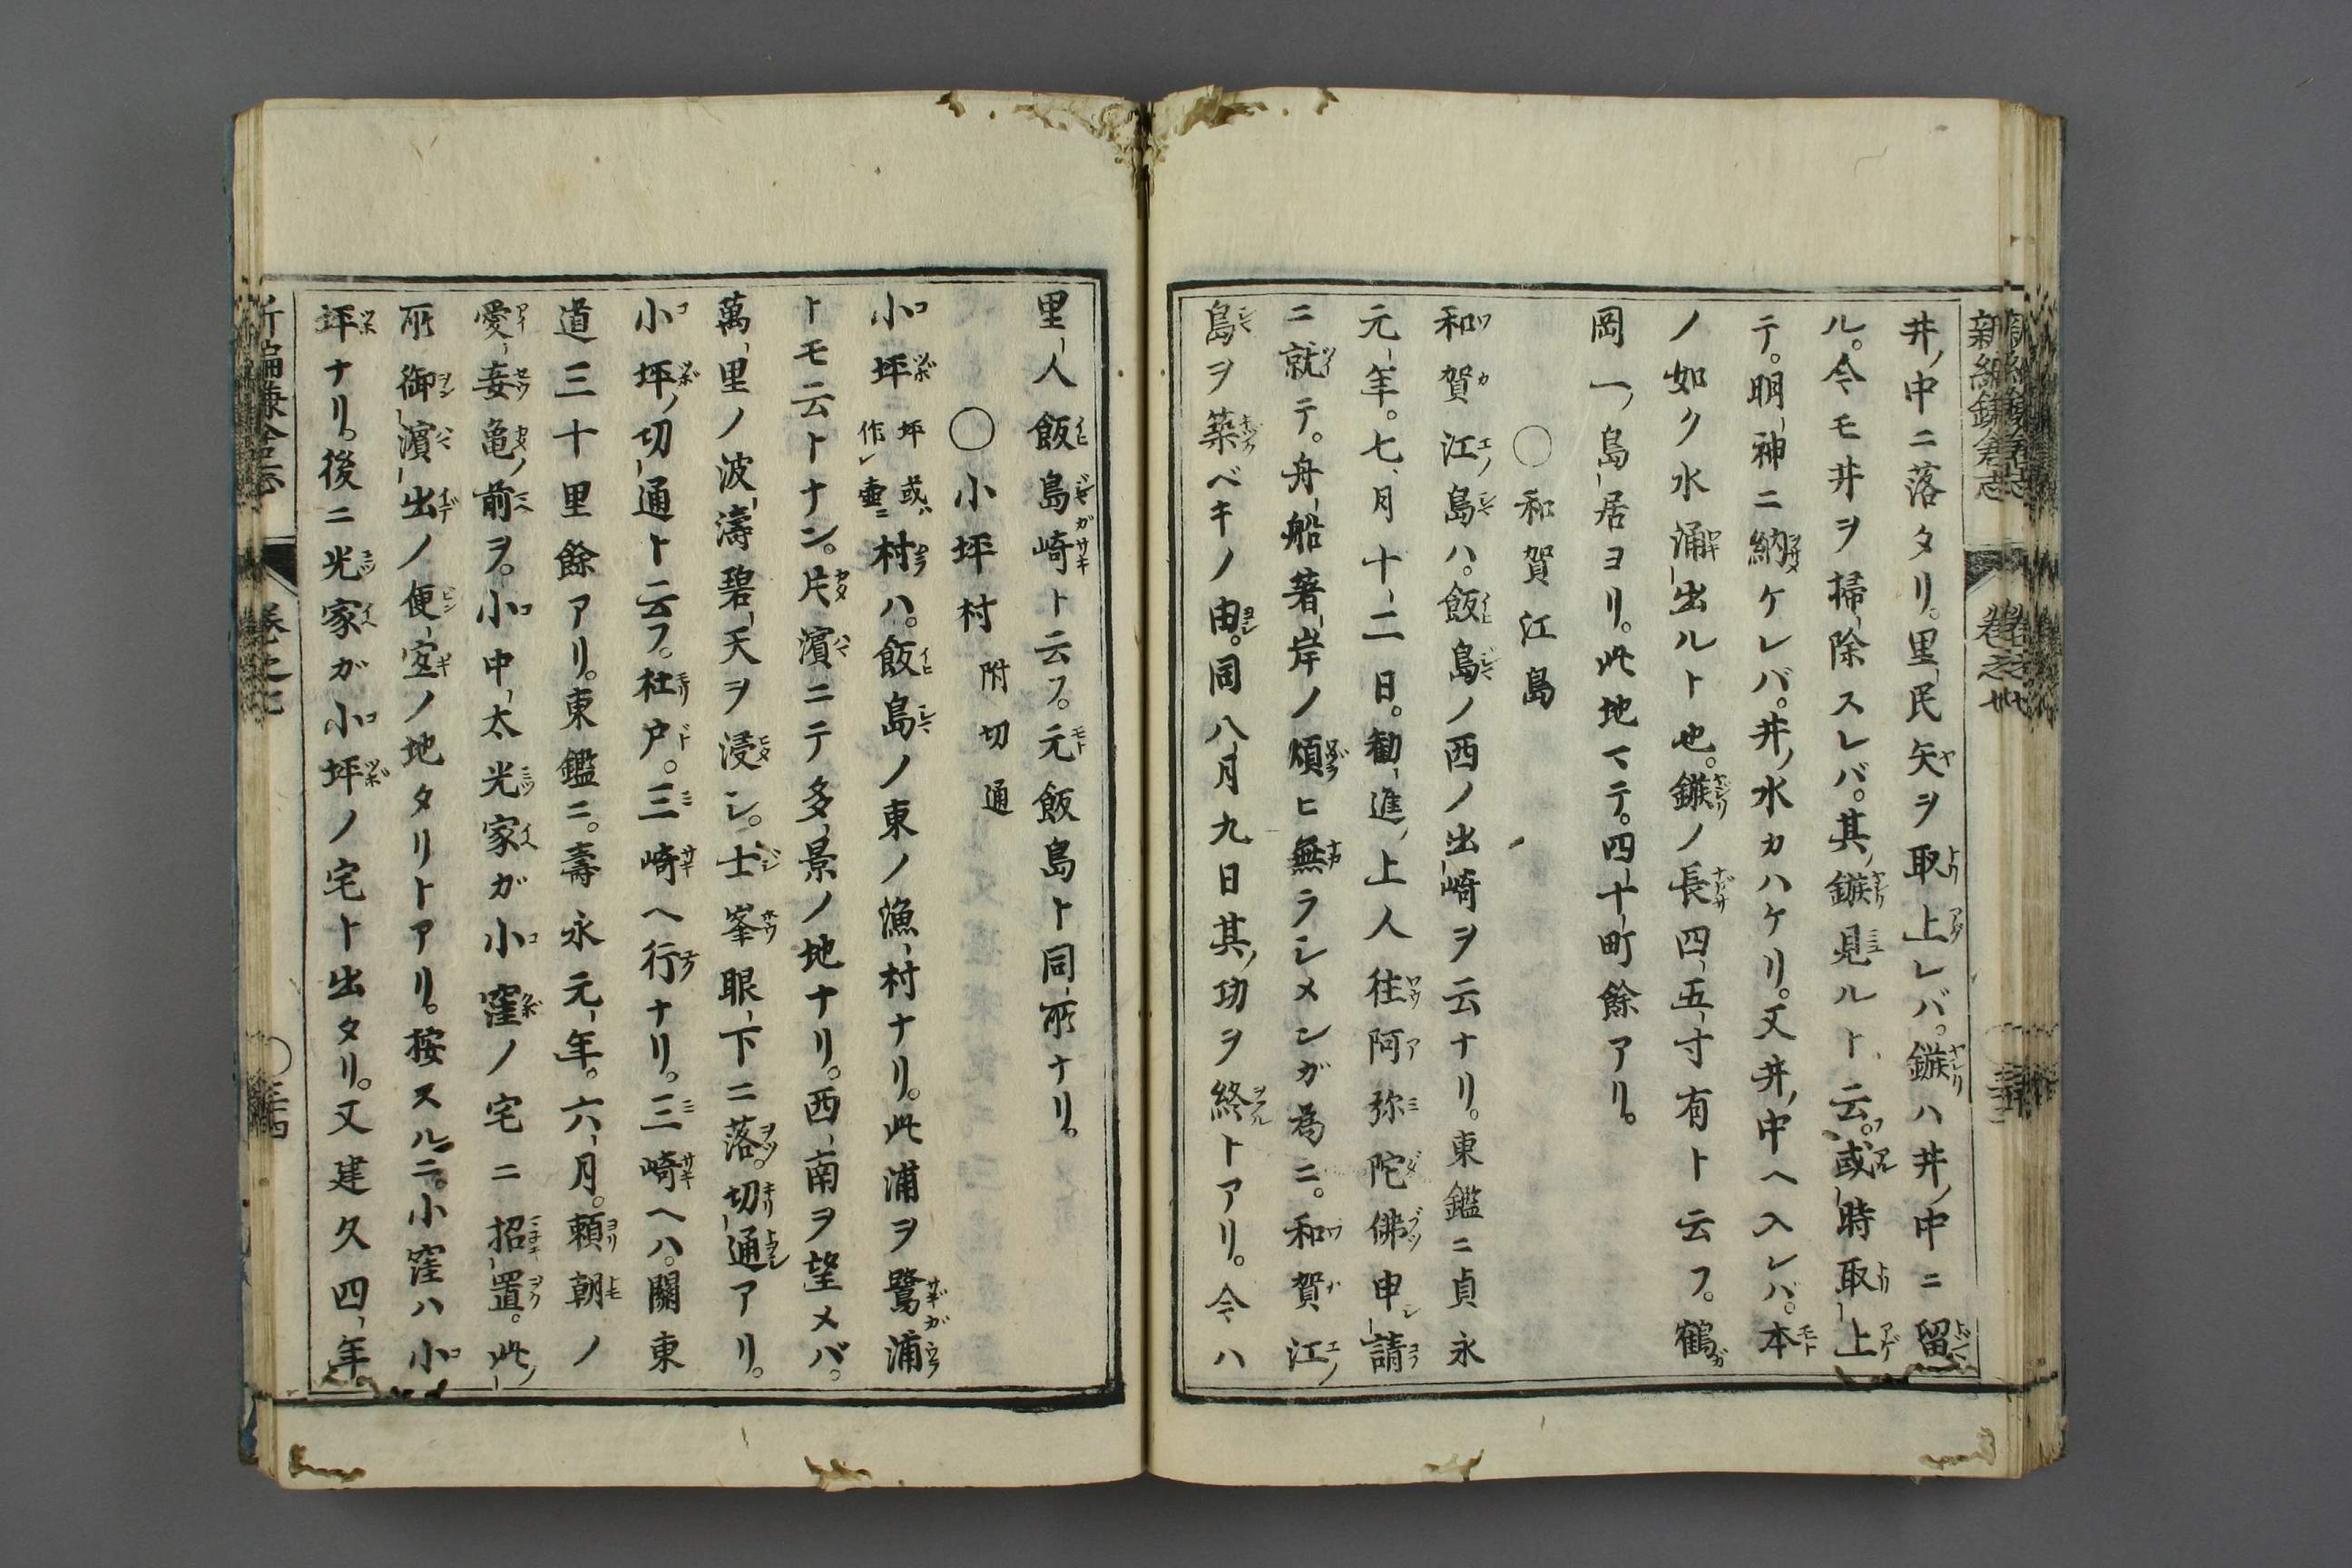 新編鎌倉志
卷之七
井ノ中ニ落タリ。里民矢ヲ取上レバ。鏃ハ井ノ中ニ留
ル。今モ井ヲ掃除スレバ。其ノ鏃見ルト云フ。或時取リ上
テ。明神ニ納ケレバ。井ノ水カハケリ。又井ノ中ヘ入レバ。本
ノ如ク水涌出ルト也。鏃ノ長四五寸有ト云フ。鶴
岡一ノ島居ヨリ。此地マテ。四十町餘アリ。
〇和賀江島
和賀江ノ島ハ。飯島ノ西ノ出崎ヲ云ナリ。東鑑ニ貞永
元年。七月十二日。勧進ノ上人往阿弥陀佛申シ請
ニ就テ。舟船著岸ノ煩ヒ無ラシメンガ為ニ。和賀江ノ
島ヲ築ベキノ由。同八月九日其ノ功ヲ終トアリ。今ハ
里人飯島崎ト云フ。元飯島ト同所ナリ。
〇小坪村 附切通
小坪 坪或ハ作レ壷ニ 村ハ。飯島ノ東ノ漁村ナリ。此浦ヲ鷺浦
トモ云トナン。片濱ニテ多景ノ地ナリ。西南ヲ望メバ。
萬里ノ波濤碧天ヲ浸シ。士峯眼下ニ落。切通アリ。
小坪ノ切通ト云フ。杜戸。三崎ヘ行ナリ。三崎ヘハ。關東
道三十里餘アリ。東鑑ニ。壽永元年。六月。頼朝ノ
愛妾亀ノ前ヲ。小中太光家ガ小窪ノ宅ニ招置。此ノ
所御濱出ノ便宜ノ地タリトアリ。按スルニ。小窪ハ小
坪ナリ。後ニ光家ガ小坪ノ宅ト出タリ。又建久四年
新編鎌倉志
卷之七
〇